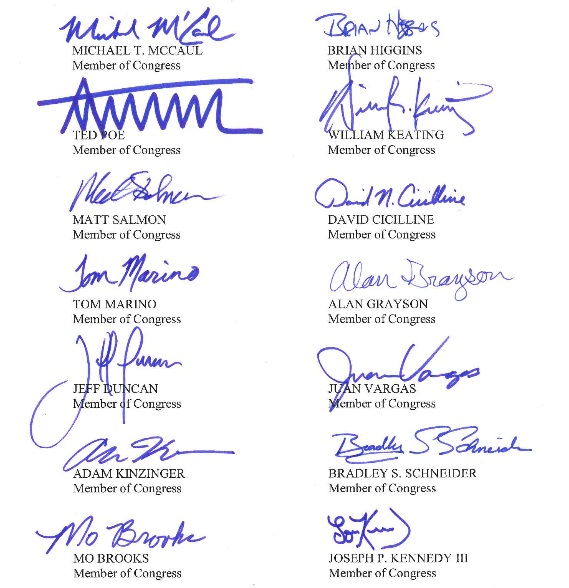 Michael McCaul
MICHAEL T. MCCAUL
Member of Congress
TED POE
Member of Congress
Matt Salmon
MATT SALMON
Member of Congress
Tom Marino
TOM MARINO
Member of Congress
Jeff Duncan
JEFF DUNCAN
Member of Congress
ADAM KINZINGER
Member of Congress
Mo Brooks
MO BROOKS
Member of Congress
Brian Higgins
BRIAN HIGGINS
Member of Congress
William R. Keating
WILLIAM KEATING
Member of Congress
David N. Cicilline
DAVID CICILLINE
Member of Congress
Alan Grayson
ALAN GRAYSON
Member of Congress
Juan Vargas
JUAN VARGAS
Member of Congress
Bradley S Schneider
BRADLEY S. SCHNEIDER
Member of Congress
JOSEPH P. KENNEDY III
Member of Congress